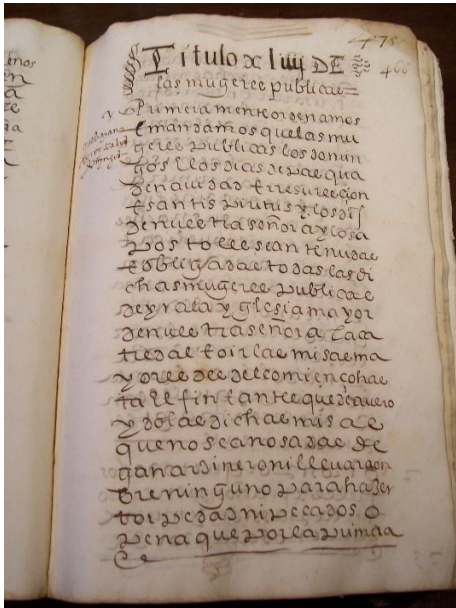 475
466
Titulo xliiij DE
las mugeres publicas
Primeramente ordenamos
E mandamos que las mu
geres publicas los domin
gos E los dias de pasqua
de nauidad E rresurecion
E santispiritus y los dis
de nuestra señora y los a
postoles sean tenudas
E obligadas todas las di
chas mugeres publicas
de yr a la yglesia mayor
de nuestra señora
E oir las misas ma
yores desde el comienço has
ta la fin E ante que de
y dichas misas
que no sean osadas de
ganar dinero ni lleuar
bre ninguno para hazer
torpedad ni pecados
pena que por la primera